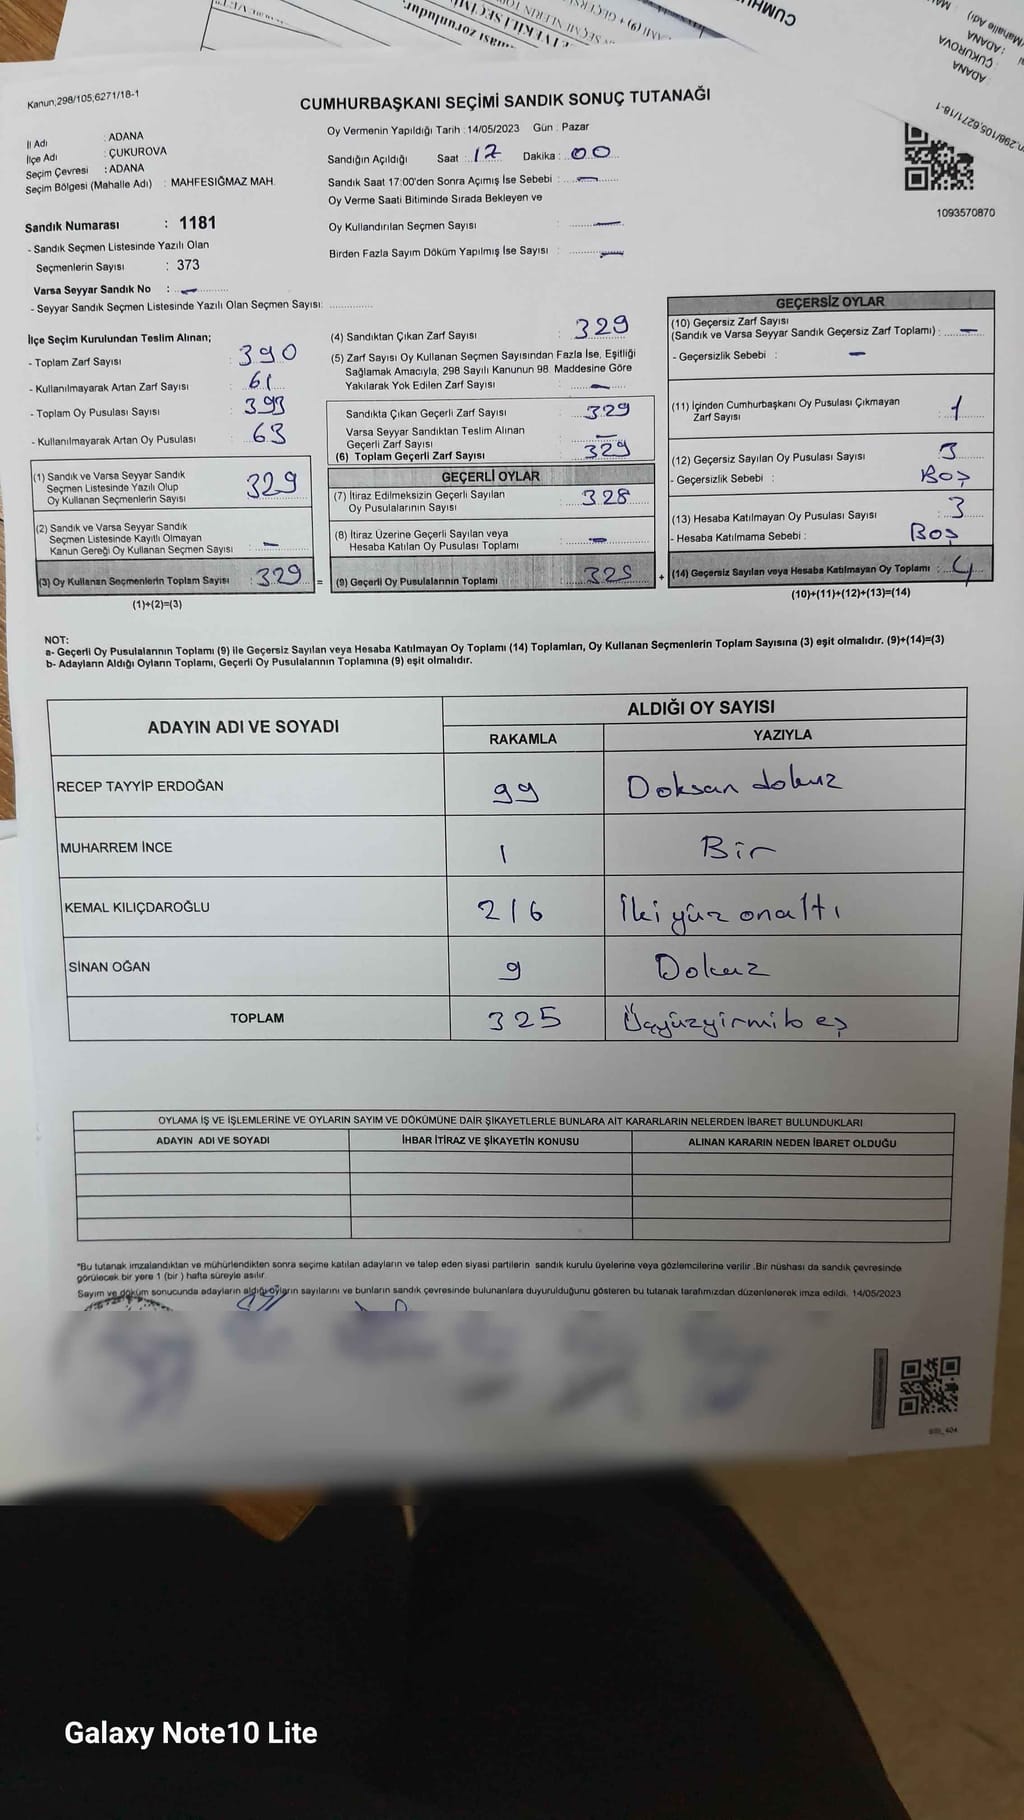 Kanun,298/105,6271/18-1
CUMHURBAŞKANI SEÇİMİ SANDIK SONUÇ TUTANAĞI
İl Adı : ADANA
İlçe Adı : ÇUKUROVA
Seçim Çevresi : ADANA
Seçim Bölgesi (Mahalle Adı) : MAHFESIĞMAZ MAH.
Sandık Numarası : 1181
- Sandık Seçmen Listesinde Yazılı Olan
Seçmenlerin Sayısı : 373
Varsa Seyyar Sandık No : -
- Seyyar Sandık Seçmen Listesinde Yazılı Olan Seçmen Sayısı:
Oy Vermenin Yapıldığı Tarih : 14/05/2023 Gün : Pazar
Sandığın Açıldığı Saat : 17 Dakika : 00
Sandık Saat 17:00'den Sonra Açımış İse Sebebi : -
Oy Verme Saati Bitiminde Sırada Bekleyen ve
Oy Kullandırılan Seçmen Sayısı : -
Birden Fazla Sayım Döküm Yapılmış İse Sayısı : -
1093570870
İlçe Seçim Kurulundan Teslim Alınan;
- Toplam Zarf Sayısı : 390
- Kullanılmayarak Artan Zarf Sayısı : 61
- Toplam Oy Pusulası Sayısı : 393
- Kullanılmayarak Artan Oy Pusulası : 63
(1) Sandık ve Varsa Seyyar Sandık
Seçmen Listesinde Yazılı Olup
Oy Kullanan Seçmenlerin Sayısı 329
(2) Sandık ve Varsa Seyyar Sandık
Seçmen Listesinde Kayıtlı Olmayan
Kanun Gereği Oy Kullanan Seçmen Sayısı : -
(3) Oy Kullanan Seçmenlerin Toplam Sayısı : 329 =
(1)+(2)=(3)
(4) Sandıktan Çıkan Zarf Sayısı : 329
(5) Zarf Sayısı Oy Kullanan Seçmen Sayısından Fazla İse, Eşitliği
Sağlamak Amacıyla, 298 Sayılı Kanunun 98. Maddesine Göre
Yakılarak Yok Edilen Zarf Sayısı : -
Sandıkta Çıkan Geçerli Zarf Sayısı : 329
Varsa Seyyar Sandıktan Teslim Alınan
Geçerli Zarf Sayısı : -
(6) Toplam Geçerli Zarf Sayısı : 329
GEÇERLİ OYLAR
(7) İtiraz Edilmeksizin Geçerli Sayılan
Oy Pusulalarının Sayısı : 328
(8) İtiraz Üzerine Geçerli Sayılan veya
Hesaba Katılan Oy Pusulası Toplamı : -
(9) Geçerli Oy Pusulalarının Toplamı : 325 +
GEÇERSİZ OYLAR
(10) Geçersiz Zarf Sayısı
(Sandık ve Varsa Seyyar Sandık Geçersiz Zarf Toplamı) : -
- Geçersizlik Sebebi : -
(11) İçinden Cumhurbaşkanı Oy Pusulası Çıkmayan
Zarf Sayısı : 1
(12) Geçersiz Sayılan Oy Pusulası Sayısı : 3
- Geçersizlik Sebebi : Boş
(13) Hesaba Katılmayan Oy Pusulası Sayısı : 3
- Hesaba Katılmama Sebebi : Boş
(14) Geçersiz Sayılan veya Hesaba Katılmayan Oy Toplamı : 4
(10)+(11)+(12)+(13)=(14)
NOT:
a- Geçerli Oy Pusulalarının Toplamı (9) ile Geçersiz Sayılan veya Hesaba Katılmayan Oy Toplamı (14) Toplamları, Oy Kullanan Seçmenlerin Toplam Sayısına (3) eşit olmalıdır. (9)+(14)=(3)
b- Adayların Aldığı Oyların Toplamı, Geçerli Oy Pusulalarının Toplamına (9) eşit olmalıdır.
ADAYIN ADI VE SOYADI ALDIĞI OY SAYISI
RAKAMLA YAZIYLA
RECEP TAYYİP ERDOĞAN 99 Doksan dokuz
MUHARREM İNCE 1 Bir
KEMAL KILIÇDAROĞLU 216 İki yüz onaltı
SİNAN OĞAN 9 Dokuz
TOPLAM 325 Üçyüzyirmibeş
OYLAMA İŞ VE İŞLEMLERİNE VE OYLARIN SAYIM VE DÖKÜMÜNE DAİR ŞİKAYETLERLE BUNLARA AİT KARARLARIN NELERDEN İBARET BULUNDUKLARI
ADAYIN ADI VE SOYADI İHBAR İTİRAZ VE ŞİKAYETİN KONUSU ALINAN KARARIN NEDEN İBARET OLDUĞU
*Bu tutanak imzalandıktan ve mühürlendikten sonra seçime katılan adayların ve talep eden siyasi partilerin sandık kurulu üyelerine veya gözlemcilerine verilir .Bir nüshası da sandık çevresinde
görülecek bir yere 1 (bir ) hafta süreyle asılır.
Sayım ve döküm sonucunda adayların aldığı oyların sayılarını ve bunların sandık çevresinde bulunanlara duyurulduğunu gösteren bu tutanak tarafımızdan düzenlenerek imza edildi. 14/05/2023
Galaxy Note10 Lite